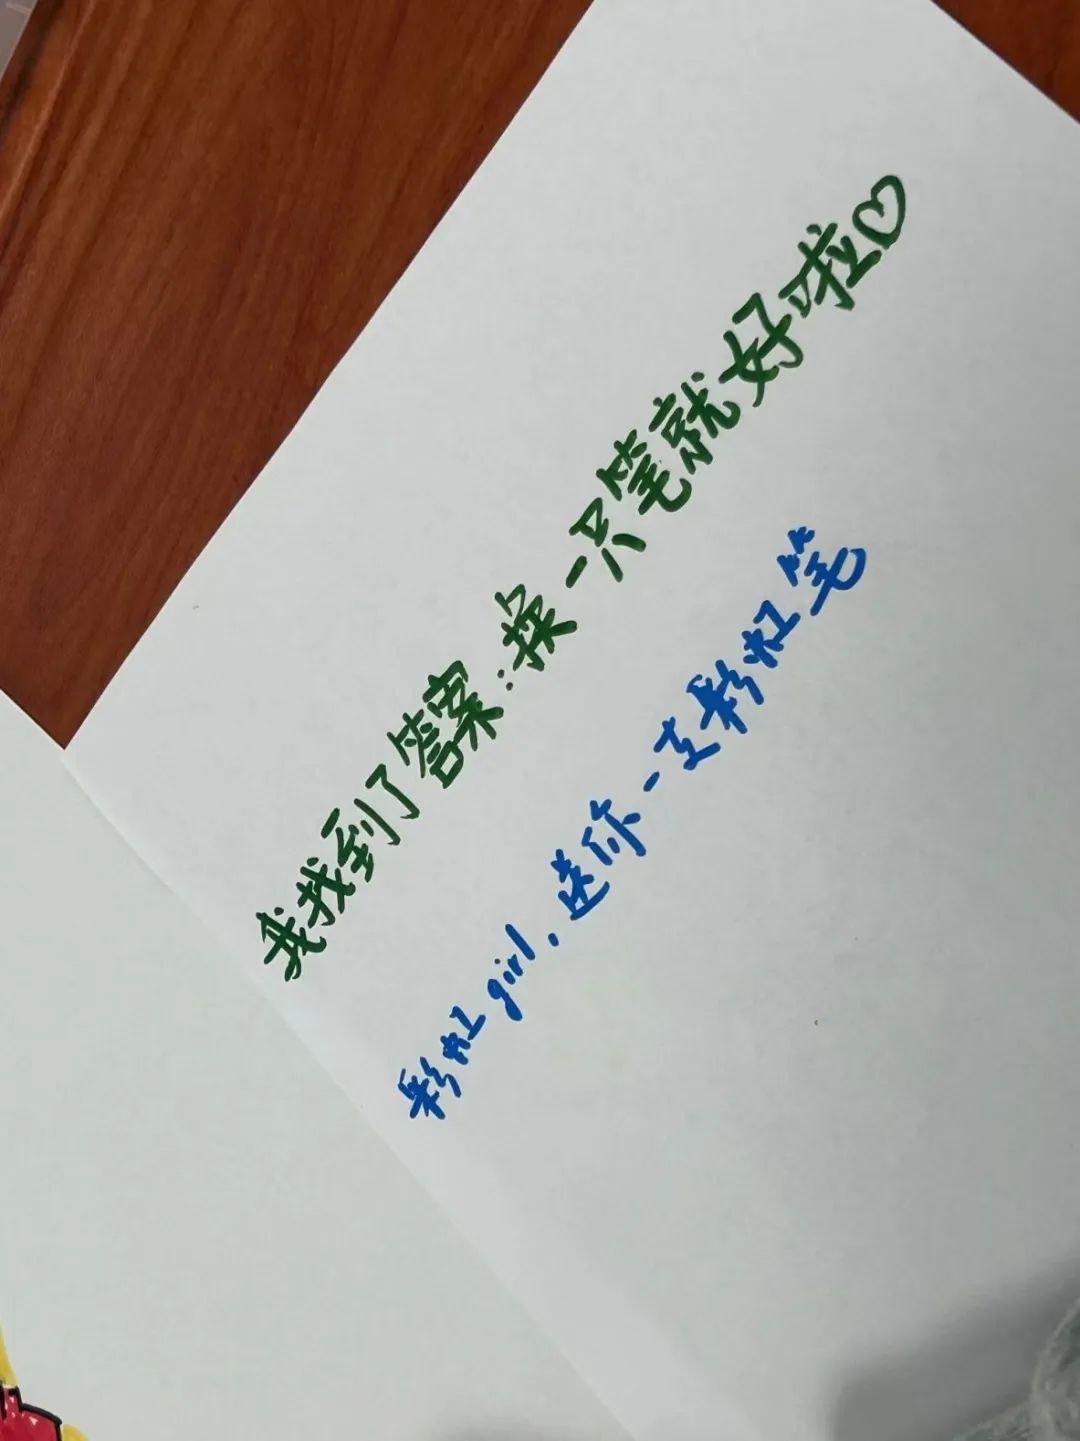 我找到了答案:换一只笔就好啦♡
彩虹girl,送你一支彩虹笔